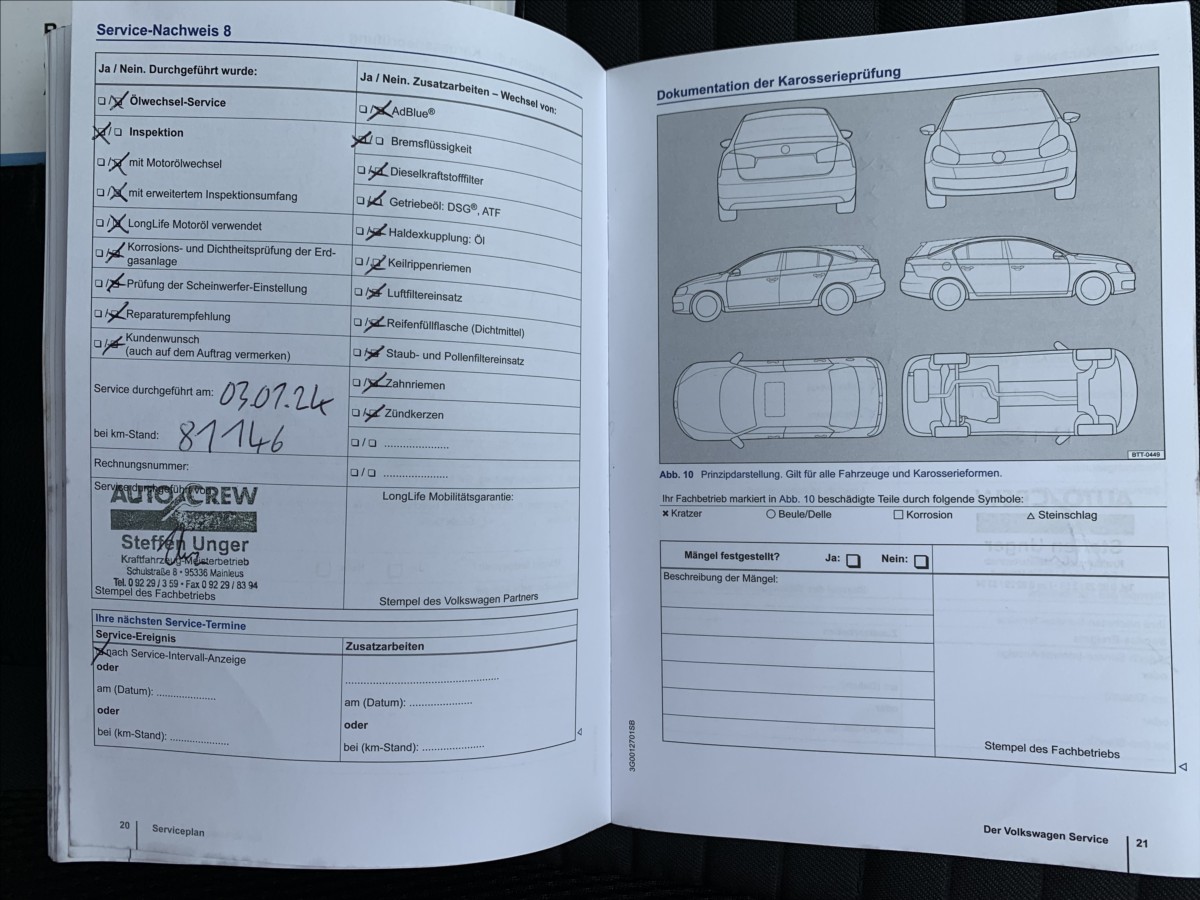 Service-Nachweis 8
Ja / Nein. Durchgeführt wurde:
❏/❏ Ölwechsel-Service
❏/❏ Inspektion
❏/❏ mit Motorölwechsel
❏/❏ mit erweitertem Inspektionsumfang
❏/❏ LongLife Motoröl verwendet
❏/❏ Korrosions- und Dichtheitsprüfung der Erd-
gasanlage
❏/❏ Prüfung der Scheinwerfer-Einstellung
❏/❏ Reparaturempfehlung
❏/❏ Kundenwunsch
(auch auf dem Auftrag vermerken)
Service durchgeführt am: 03.01.24
bei km-Stand: 81146
Rechnungsnummer:
Service durchgeführt von:
AUTO CREW
Steffen Unger
Kraftfahrzeug-Meisterbetrieb
Schulstraße 8 • 95336 Mainleus
Tel. 0 92 29 / 3 59 • Fax 0 92 29 / 83 94
Stempel des Fachbetriebs
Ja / Nein. Zusatzarbeiten – Wechsel von:
❏/❏ AdBlue®
❏/❏ Bremsflüssigkeit
❏/❏ Dieselkraftstofffilter
❏/❏ Getriebeöl: DSG®, ATF
❏/❏ Haldexkupplung: Öl
❏/❏ Keilrippenriemen
❏/❏ Luftfiltereinsatz
❏/❏ Reifenfüllflasche (Dichtmittel)
❏/❏ Staub- und Pollenfiltereinsatz
❏/❏ Zahnriemen
❏/❏ Zündkerzen
❏/❏ .....................
❏/❏ .....................
LongLife Mobilitätsgarantie:
Stempel des Volkswagen Partners
Ihre nächsten Service-Termine
Service-Ereignis
nach Service-Intervall-Anzeige
oder
am (Datum): ...................
oder
bei (km-Stand): ...................
Zusatzarbeiten
..................................................
am (Datum): ....................
oder
bei (km-Stand): ....................
20 Serviceplan
Dokumentation der Karosserieprüfung
BTT-0449
Abb. 10 Prinzipdarstellung. Gilt für alle Fahrzeuge und Karosserieformen.
Ihr Fachbetrieb markiert in Abb. 10 beschädigte Teile durch folgende Symbole:
✖ Kratzer ○ Beule/Delle □ Korrosion △ Steinschlag
Mängel festgestellt? Ja: ❏ Nein: ❏
Beschreibung der Mängel:
Stempel des Fachbetriebs
3G0012701SB
Der Volkswagen Service 21